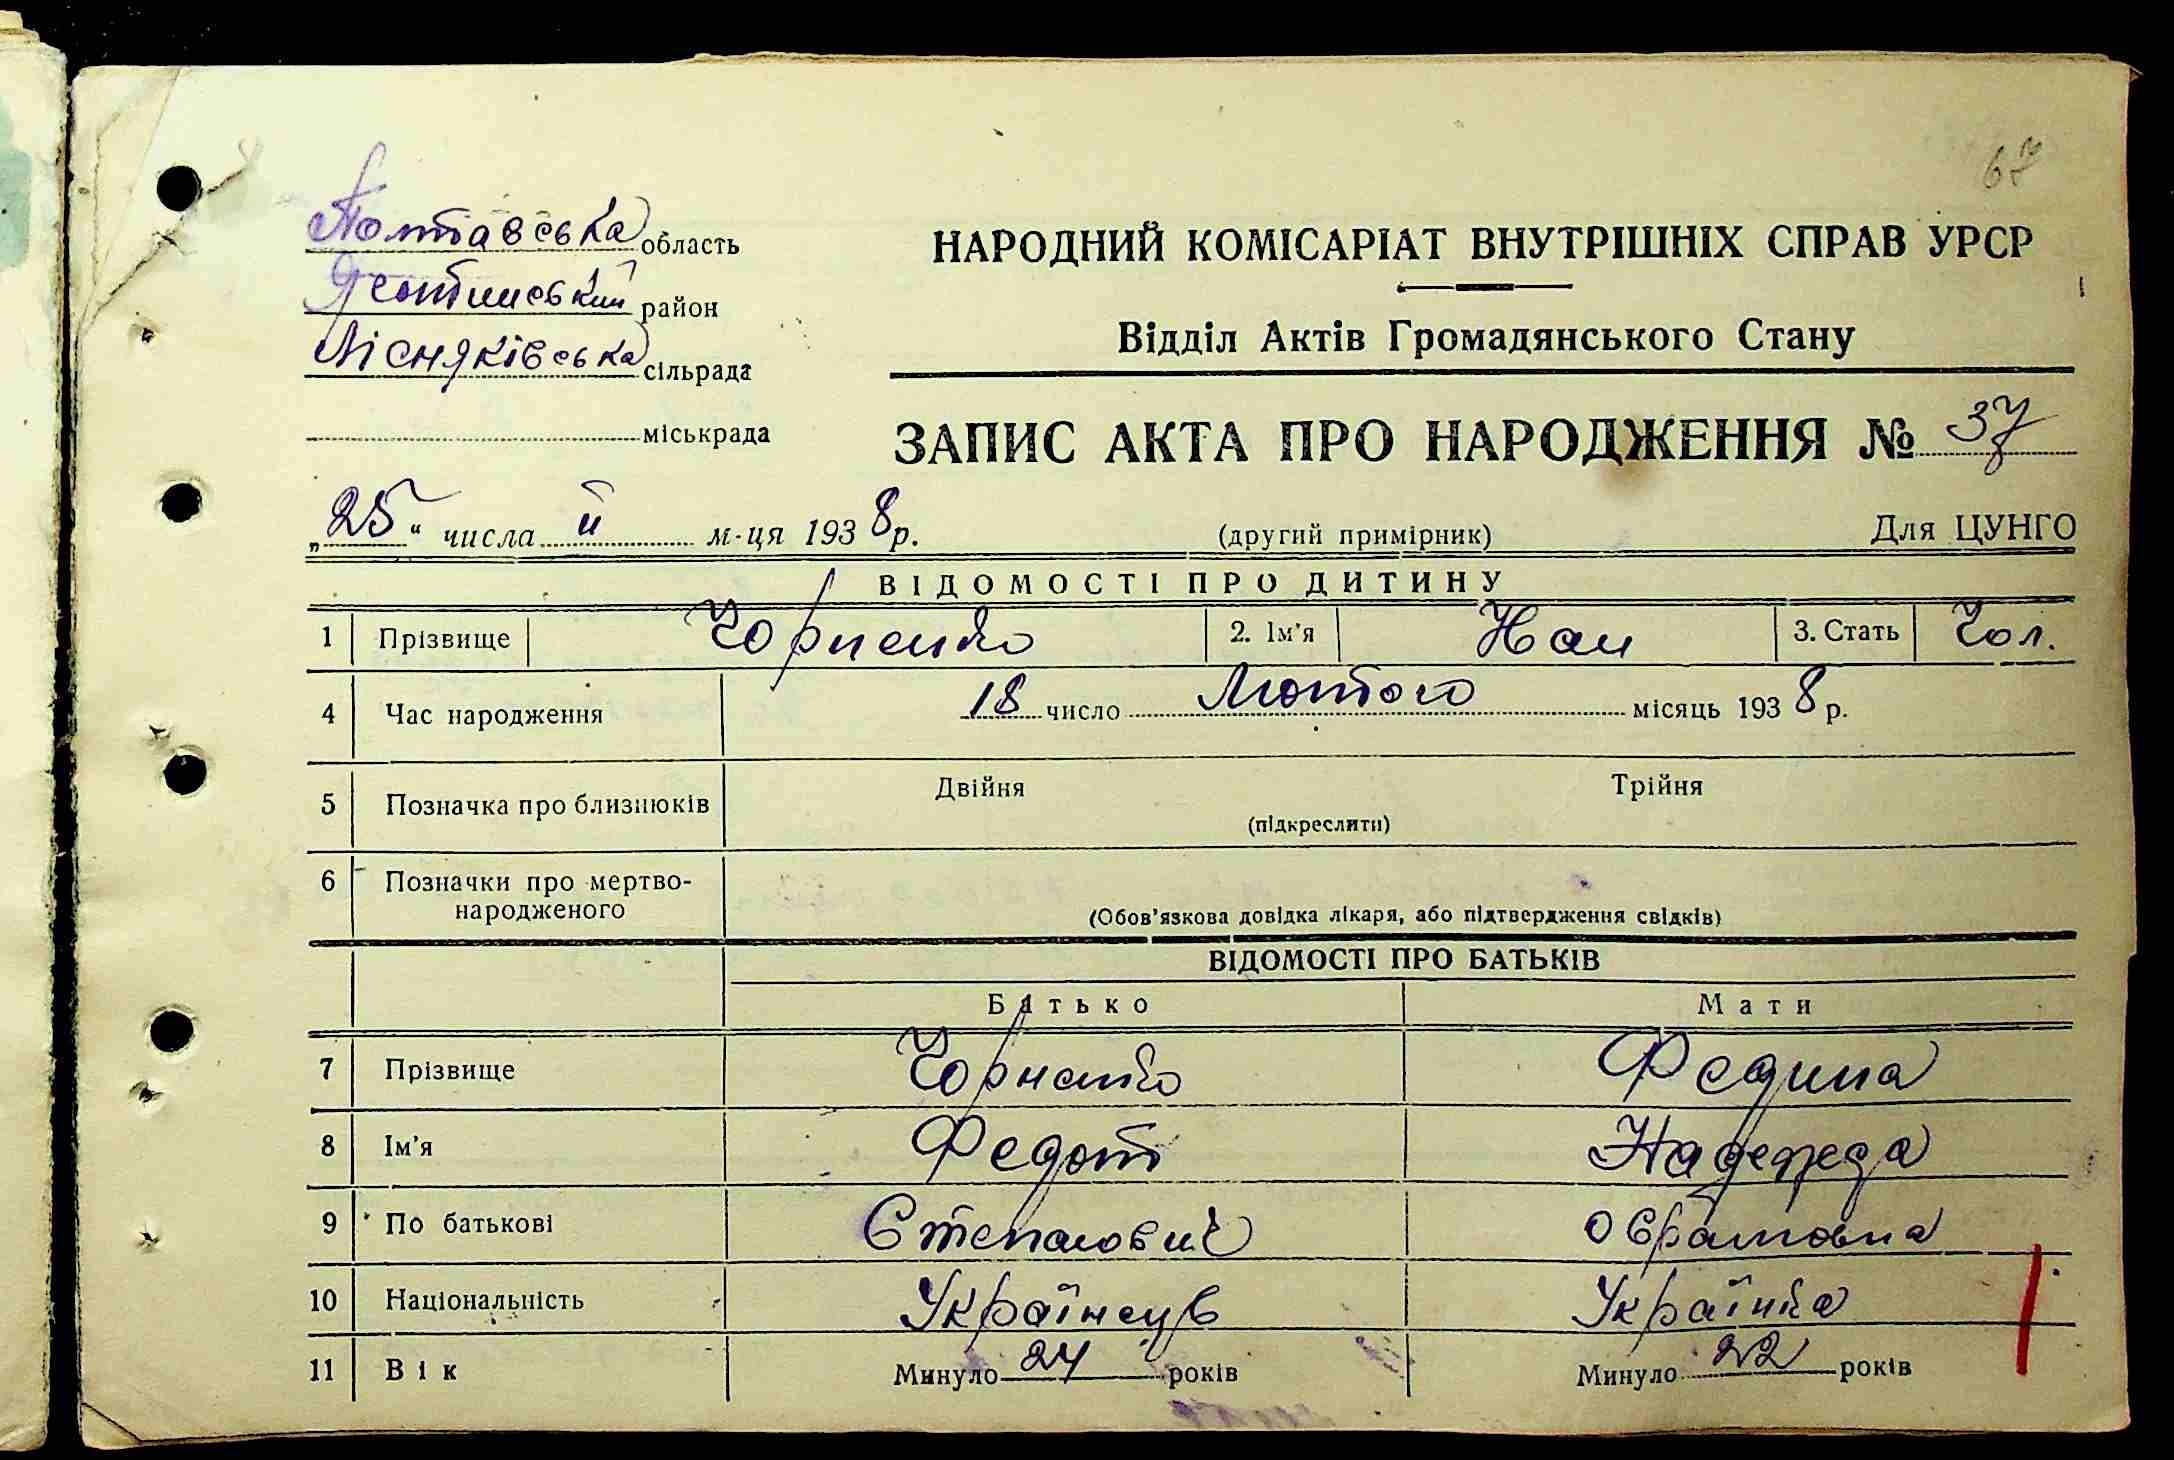 67
Полтавська область
Яготинський район
Лісняківська сільрада
міськрада
НАРОДНИЙ КОМІСАРІАТ ВНУТРІШНІХ СПРАВ УРСР
Відділ Актів Громадянського Стану
ЗАПИС АКТА ПРО НАРОДЖЕННЯ № 37
„25“ числа II м-ця 1938р. (другий примірник) Для ЦУНГО
ВІДОМОСТІ ПРО ДИТИНУ
1 Прізвище Чорненко 2. Ім'я Іван 3. Стать Чол.
4 Час народження 18 число Лютого місяць 1938 р.
5 Позначка про близнюків Двійня Трійня
(підкреслити)
6 Позначки про мертво-
народженого
(Обов'язкова довідка лікаря, або підтвердження свідків)
ВІДОМОСТІ ПРО БАТЬКІВ
Батько Мати
7 Прізвище Чорненко Федина
8 Ім'я Федот Надежда
9 По батькові Степанович
10 Національність Українець Українка
11 Вік Минуло 24 років Минуло 22 років